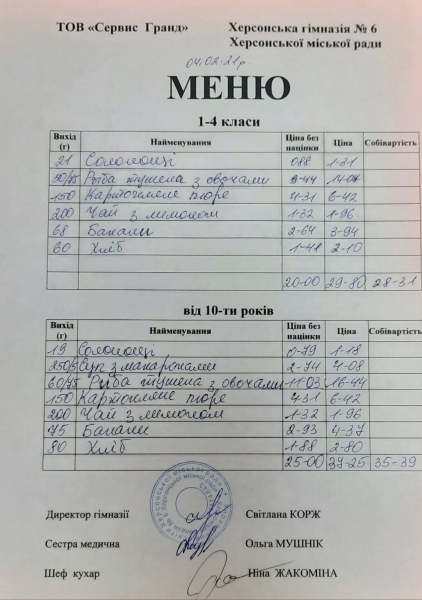 ТОВ «Сервис Гранд» Херсонська гімназія № 6
Херсонської міської ради
04.02.21р.
МЕНЮ
1-4 класи
Вихід (г) Найменування Ціна без націнки Ціна Собівартість
21 Солоющі 088 1-31
50/75 Риба тушена з овочами 9-44 14-07
150 Картопляне пюре 4-31 6-42
200 Чай з лимоном 1-32 1-96
68 Банани 2-64 3-94
60 Хліб 1-41 2-10
20-00 29-80 28-31
від 10-ти років
Вихід (г) Найменування Ціна без націнки Ціна Собівартість
19 0-79 1-18
Суп з макаронами 2-74 4-08
60/75 Риба тушена з овочами 11-03 16-44
150 Картопляне пюре 4-31 6-42
200 Чай з лимоном 1-32 1-96
75 Банани 2-93 4-37
80 Хліб 1-88 2-80
25-00 37-25 35-39
Директор гімназії Світлана КОРЖ
Сестра медична Ольга МУШНІК
Шеф кухар Ніна ЖАКОМІНА